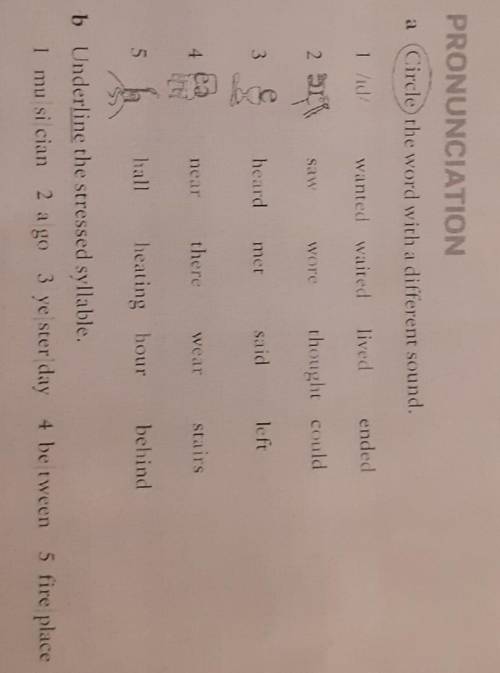 PRONUNCIATION
a Circle the word with a different sound.
1 /ɪd/ wanted waited lived ended
2 ɔː saw wore thought could
3 e heard met said left
4 eə near there wear stairs
5 h hall heating hour behind
b Underline the stressed syllable.
1 mu|si|cian 2 a|go 3 ye|ster|day 4 be|tween 5 fire|place